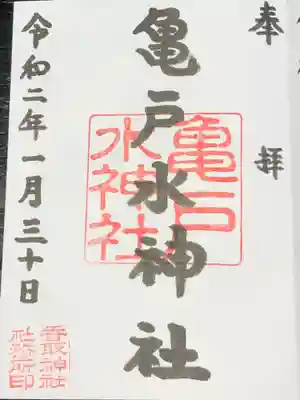 奉拝
亀戸水神社
亀戸
水神社
令和二年一月三十日
香取神社
社務所印